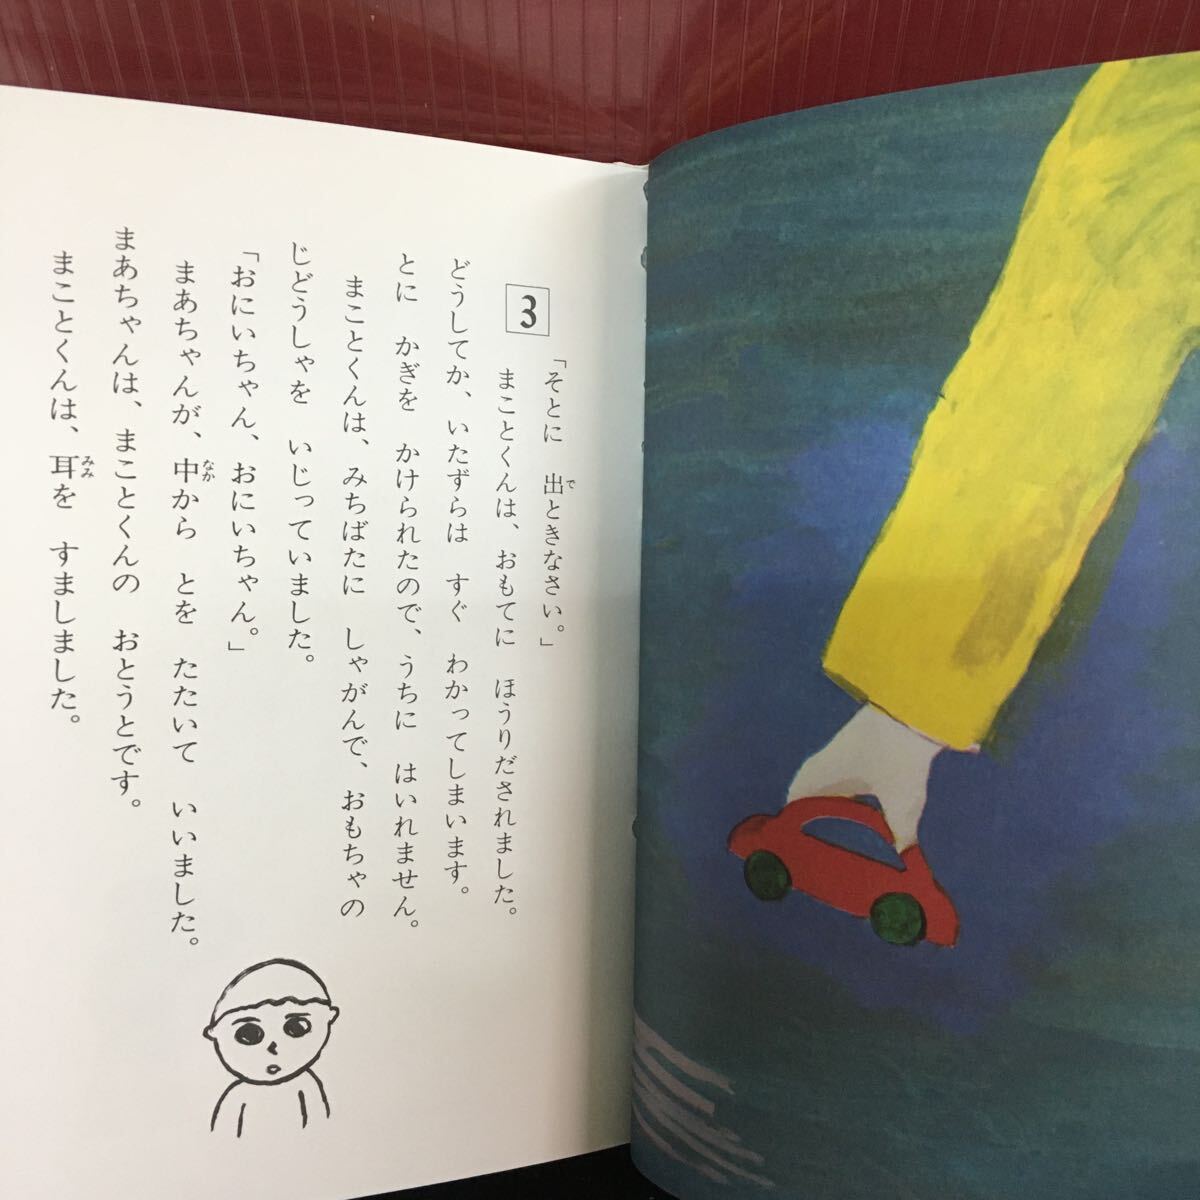 3
「そとに 出ときなさい。」
まことくんは、おもてに ほうりだされました。
どうしてか、いたずらは すぐ わかってしまいます。
とに かぎを かけられたので、うちに はいれません。
まことくんは、みちばたに しゃがんで、おもちゃの
じどうしゃを いじっていました。
「おにいちゃん、おにいちゃん。」
まあちゃんが、中から とを たたいて いいました。
まあちゃんは、まことくんの おとうとです。
まことくんは、耳を すましました。